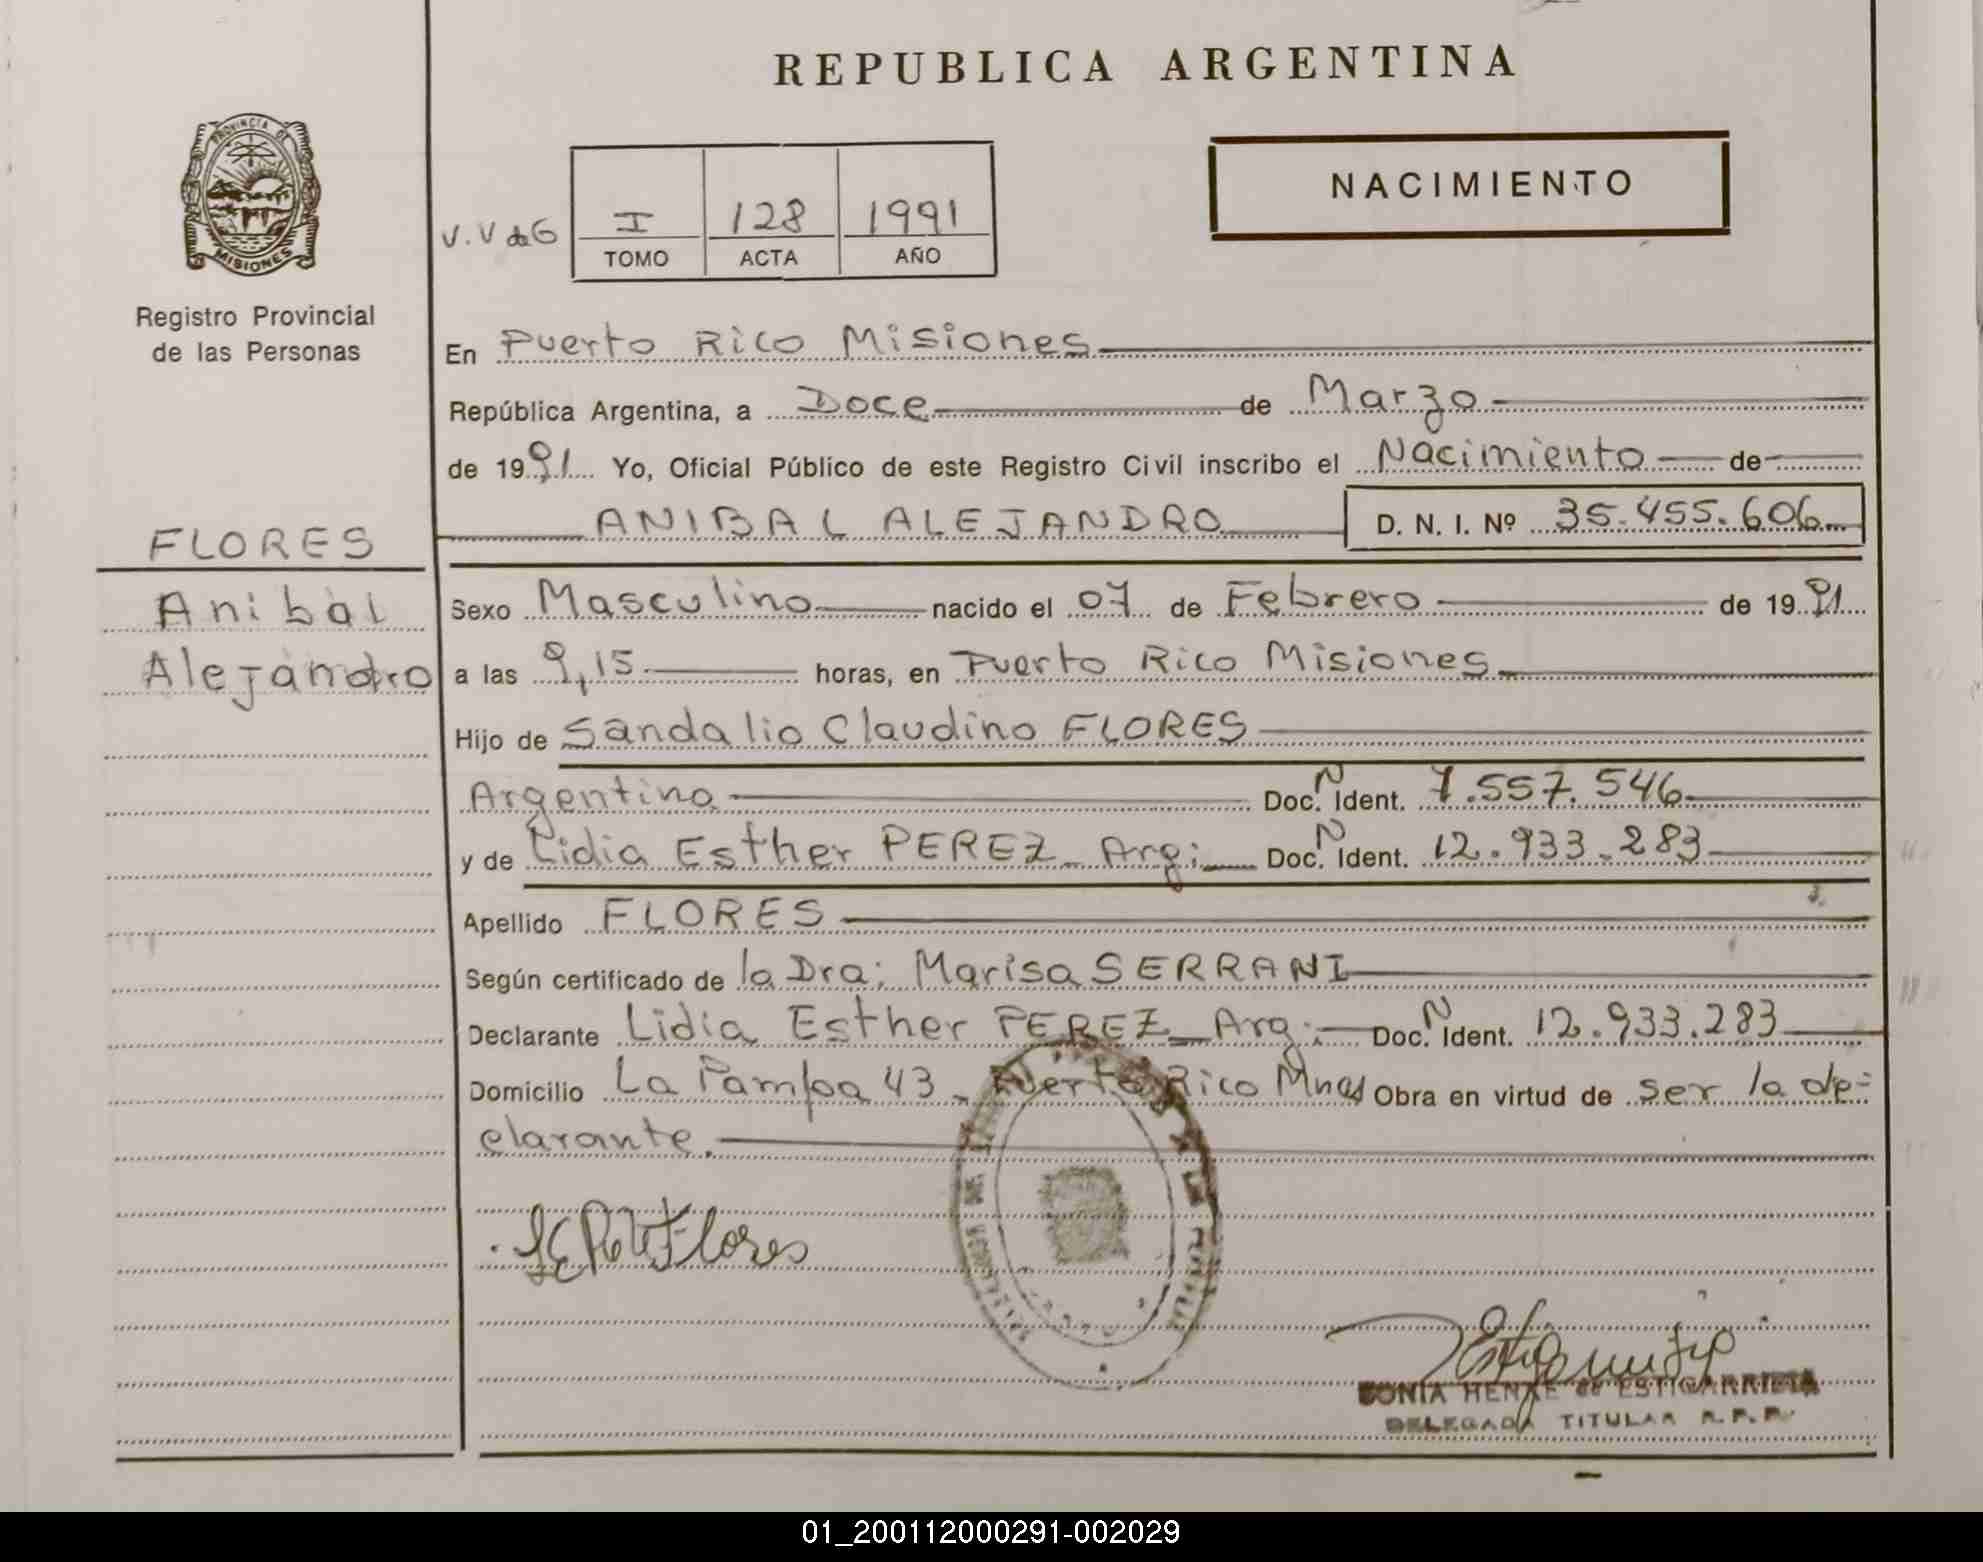 REPUBLICA ARGENTINA
PROVINCIA DE
MISIONES
Registro Provincial
de las Personas
V.V de G
I 128 1991
TOMO ACTA AÑO
NACIMIENTO
En Puerto Rico Misiones
República Argentina, a Doce de Marzo
de 1991 Yo, Oficial Público de este Registro Civil inscribo el Nacimiento de
ANIBAL ALEJANDRO D. N. I. Nº 35.455.606
FLORES
Anibal
Alejandro
Sexo Masculino nacido el 07 de Febrero de 1991
a las 9,15 horas, en Puerto Rico Misiones
Hijo de Sandalio Claudino FLORES
Argentino Doc. N Ident. 7.557.546
y de Lidia Esther PEREZ Arg: Doc. N Ident. 12.933.283
Apellido FLORES
Según certificado de la Dra: Marisa SERRANI
Declarante Lidia Esther PEREZ Arg: Doc. N Ident. 12.933.283
Domicilio La Pampa 43 Puerto Rico Mnes Obra en virtud de ser la de-
clarante.
Flores
SONIA HENKE de ESTIGARRIBIA
DELEGADA TITULAR R.P.P.
01_200112000291-002029